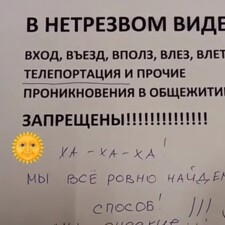 В НЕТРЕЗВОМ ВИДЕ
ВХОД, ВЪЕЗД, ВПОЛЗ, ВЛЕЗ, ВЛЕТ
ТЕЛЕПОРТАЦИЯ И ПРОЧИЕ
ПРОНИКНОВЕНИЯ В ОБЩЕЖИТИ
ЗАПРЕЩЕНЫ!!!!!!!!!!!!!!!
ХА-ХА-ХА!
МЫ ВСЁ РОВНО НАЙДЕМ
СПОСОБ! !!!